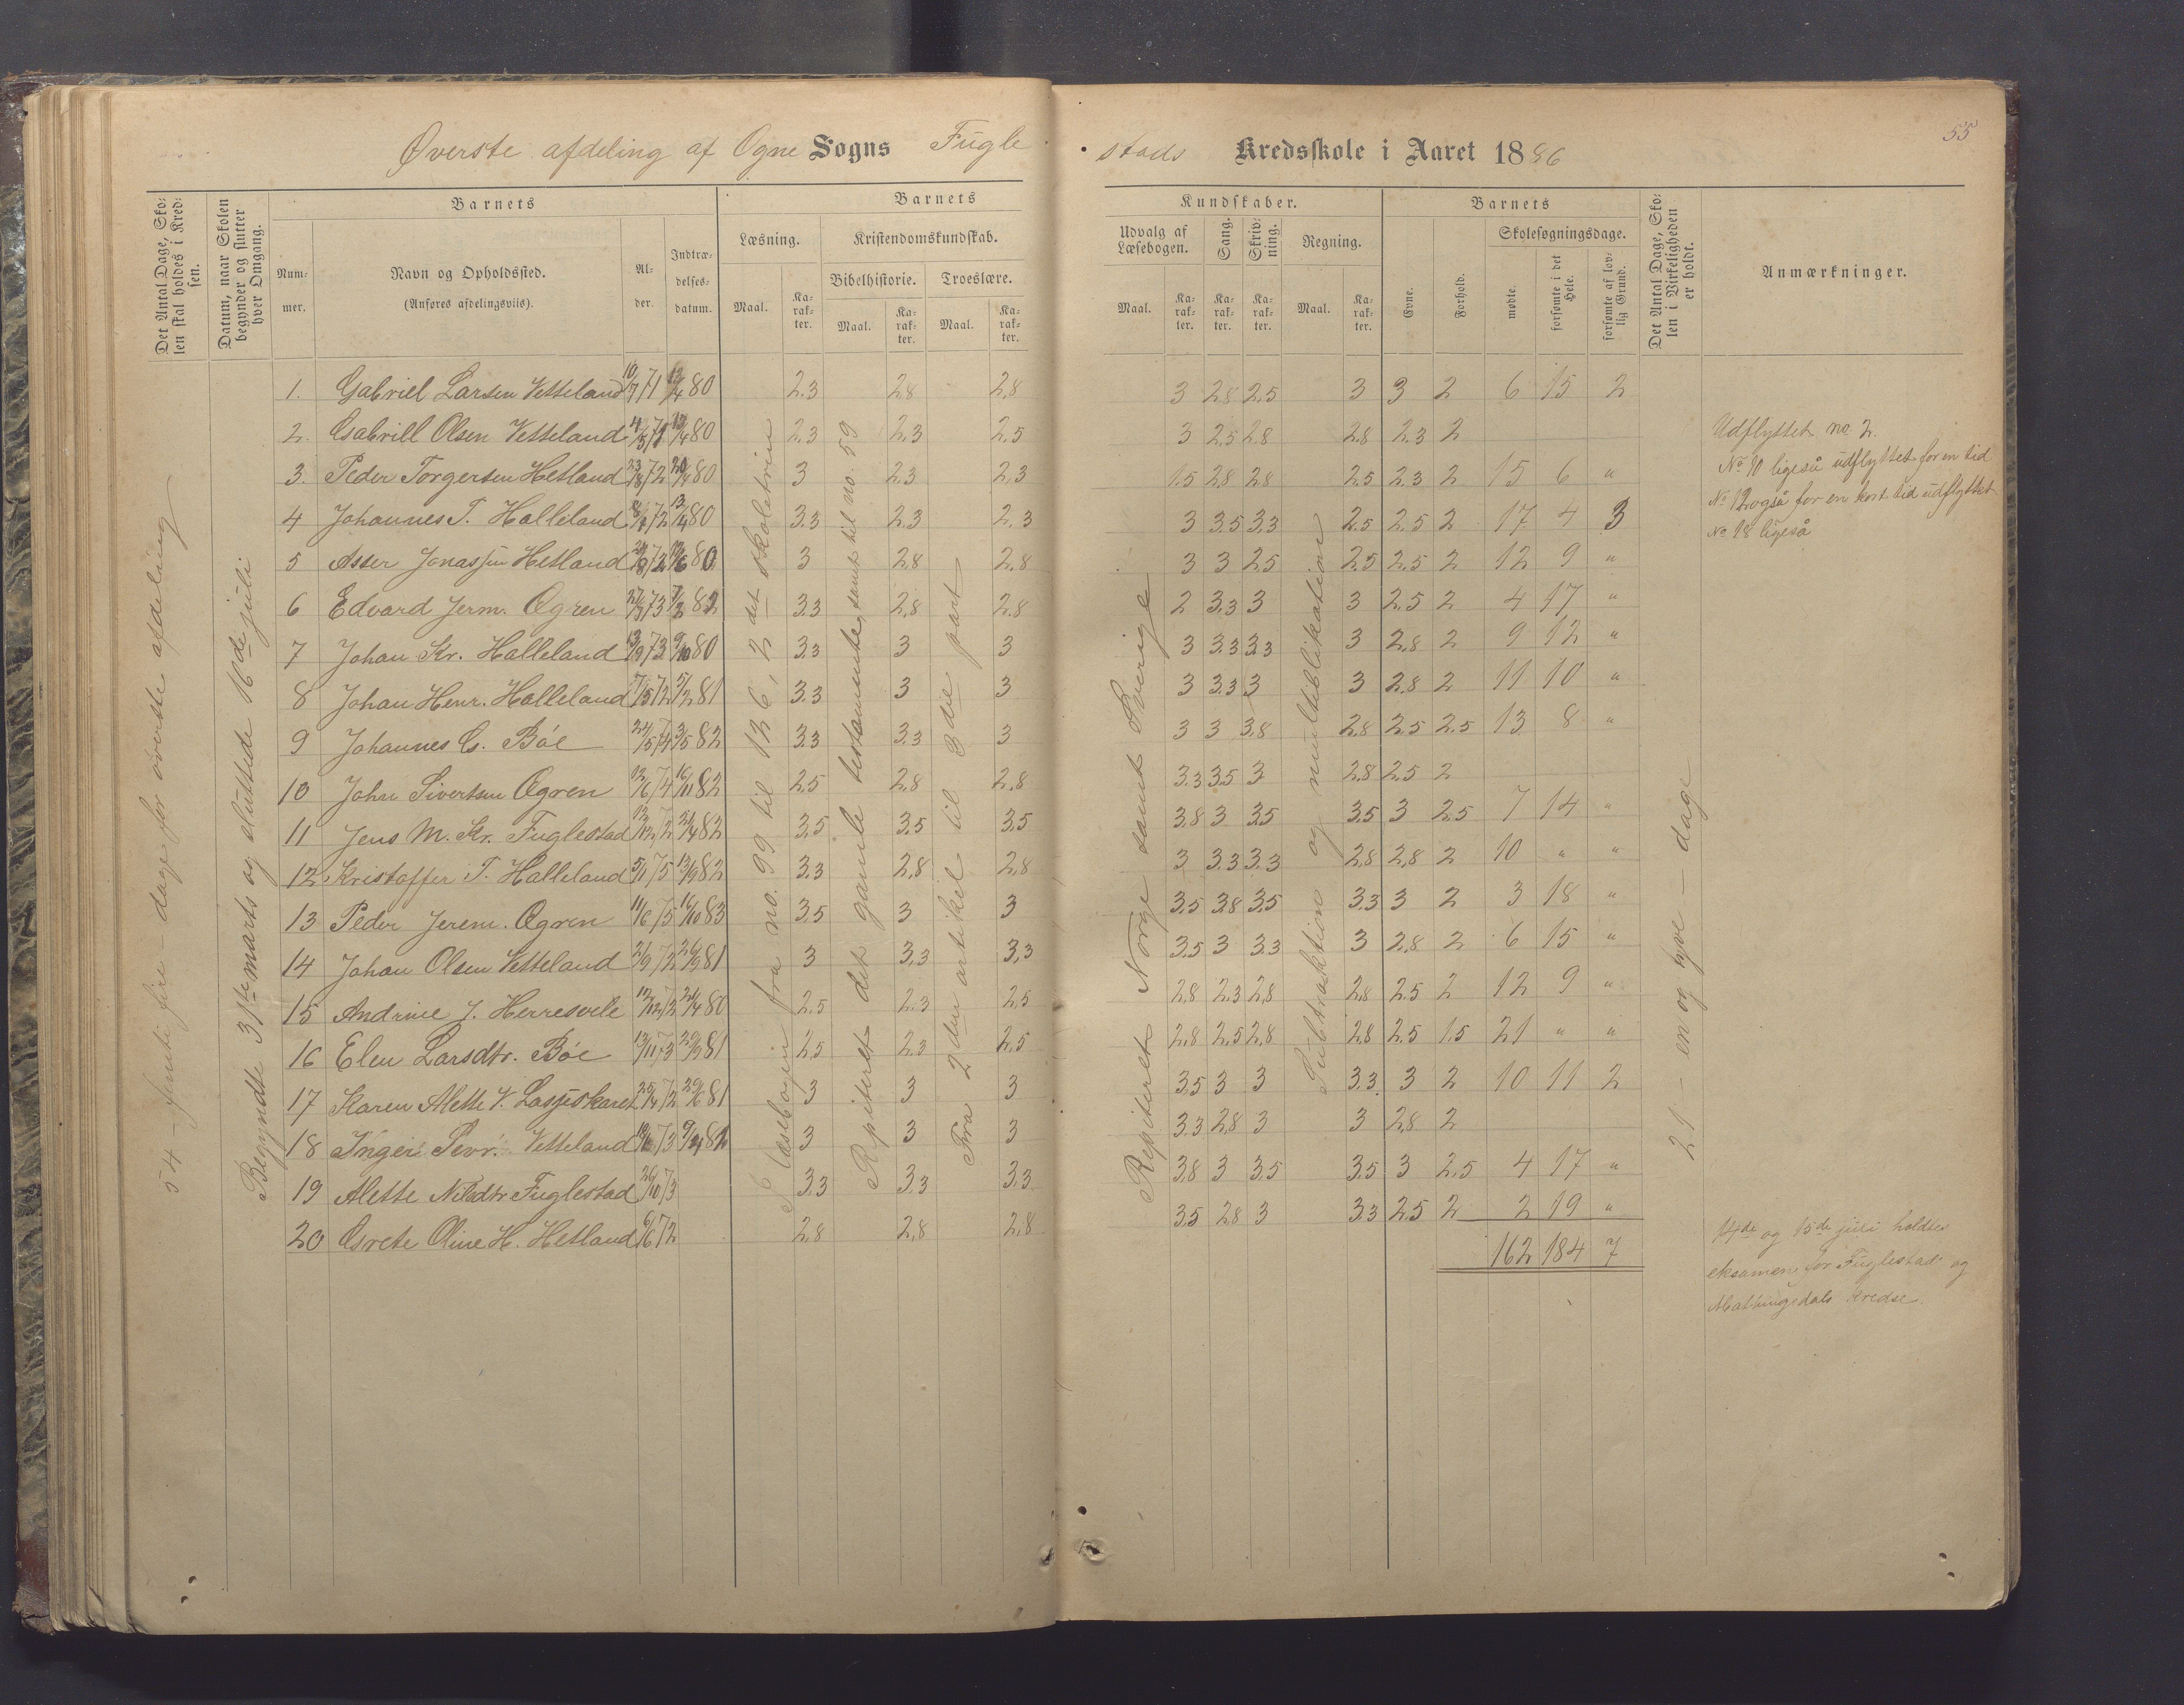 Øverste afdeling af Ogne Sogns Fugle
stads Kredsskole i Aaret 1886
55
Det Antal Dage, Sko-
len skal holdes i Kred-
sen.
Datum, naar Skolen
begynder og slutter
hver Omgang.
Barnets
Num-
mer.
Navn og Opholdssted.
(Anføres afdelingsviis).
Al-
der.
Indtræ-
delses-
datum.
Barnets
Læsning.
Kristendomskundskab.
Bibelhistorie.
Troeslære.
Maal.
Ka-
rak-
ter.
Maal.
Ka-
rak-
ter.
Maal.
Ka-
rak-
ter.
Kundskaber.
Udvalg af
Læsebogen.
Sang.
Skriv-
ning.
Regning.
Maal.
Ka-
rak-
ter.
Ka-
rak-
ter.
Ka-
rak-
ter.
Maal.
Ka-
rak-
ter.
Barnets
Evne.
Forhold.
Skolesøgningsdage.
mødte.
forsømte i det
Hele.
forsømte af lov-
lig Grund.
Det Antal Dage, Sko-
len i Virkeligheden
er holdt.
Anmærkninger.
54 – femti fire – dage for øverste afdeling
Begyndte 31te marts og sluttede 16de juli
Læsebogen fra no. 99 til 126, 2det skoletrin
Repiteret det gamle testamente, samt til no. 59
Fra 2den artikel til 3die part
Repiteret Norge samt Sverige
Subtraktion og multeblikatione
21 – en og tyve – dage
1. Gabriel Larsen Vetteland 10/7 71 13/4 80 2.3 2.8 2.8 3 2.8 2.5 3 3 2 6 15 2
2. Gabriel Olsen Vetteland 13/4 80 2.3 2.3 2.5 3 2.5 2.8 2.8 2.3 2
3. Peder Torgersen Hetland 23/8 72 20/4 80 3 2.3 2.3 1.5 2.8 2.8 2.5 2.3 2 15 6 "
4 Johannes T. Halleland 72 13/4 80 3.3 2.3 2.3 3 3.5 3.3 2.5 2.5 2 17 4 3
5 Asser Jonassen Hetland 72 80 3 2.8 2.8 3 3 2.5 2.5 2.5 2 12 9 "
6 Edvard Jerm. Ogren 73 82 3.3 2.8 2.8 2 3.3 3 3 2.5 2 4 17 "
7 Johan Kr. Halleland 13/9 73 9/10 80 3.3 3 3 3 3.3 3.3 3 2.8 2 9 12 "
8 Johan Henr. Halleland 7/5 72 5/2 81 3.3 3 3 3 3.3 3 3 2.8 2 11 10 "
9 Johannes G. Bøe 74 3/5 82 3.3 3.3 3 3 3 3.8 2.8 2.5 2.5 13 8 "
10 John Sivertsen Ogren 12/6 74 16/11 82 2.5 2.8 2.8 3.3 3.5 3 2.8 2.5 2
11 Jens M. Kr. Fuglestad 13/12 72 82 3.5 3.5 3.5 3.8 3 3.5 3.5 3 2.5 7 14 "
12 Kristoffer T. Halleland 5/1 75 13/9 82 3.3 2.8 2.8 3 3.3 3.3 2.8 2.8 2 10 " "
13 Peder Jerem. Ogren 11/6 75 16/10 83 3.5 3 3 3.5 3.8 3.5 3.3 3 2 3 18 "
14 Johan Olsen Vetteland 72 81 3 3.3 3.3 3.5 3 3.3 3 2.8 2 6 15 "
15 Andrine J. Herresvele 72 80 2.5 2.3 2.5 2.8 2.3 2.8 2.8 2.5 2 12 9 "
16 Elen Larsdtr. Bøe 13/11 73 81 2.5 2.3 2.5 2.8 2.5 2.8 2.8 2.5 1.5 21 " "
17 Karen Alette V. 72 81 3 3 3 3.5 3 3 3.3 3 2 10 11 2
18 Inger Sevr. Vetteland 73 3 3 3 3.3 2.8 3 3 2.8 2
19 Alette Nilsdtr Fuglestad 26/10 73 3.3 3.3 3.3 3.8 3 3.5 3.5 3 2.5 4 17 "
20 Grete Oline H. Hetland 6/6 72 2.8 2.8 2.8 3.5 2.8 3 3.3 2.5 2 2 19 "
162 184 7
Udflyttet no. 2.
No 10 ligeså udflyttet for en tid
No 12 også for en kort tid udflyttet
No 18 ligeså
14de og 15de juli holdtes
eksamen for Fuglestad og
Mathingsdals kredse.